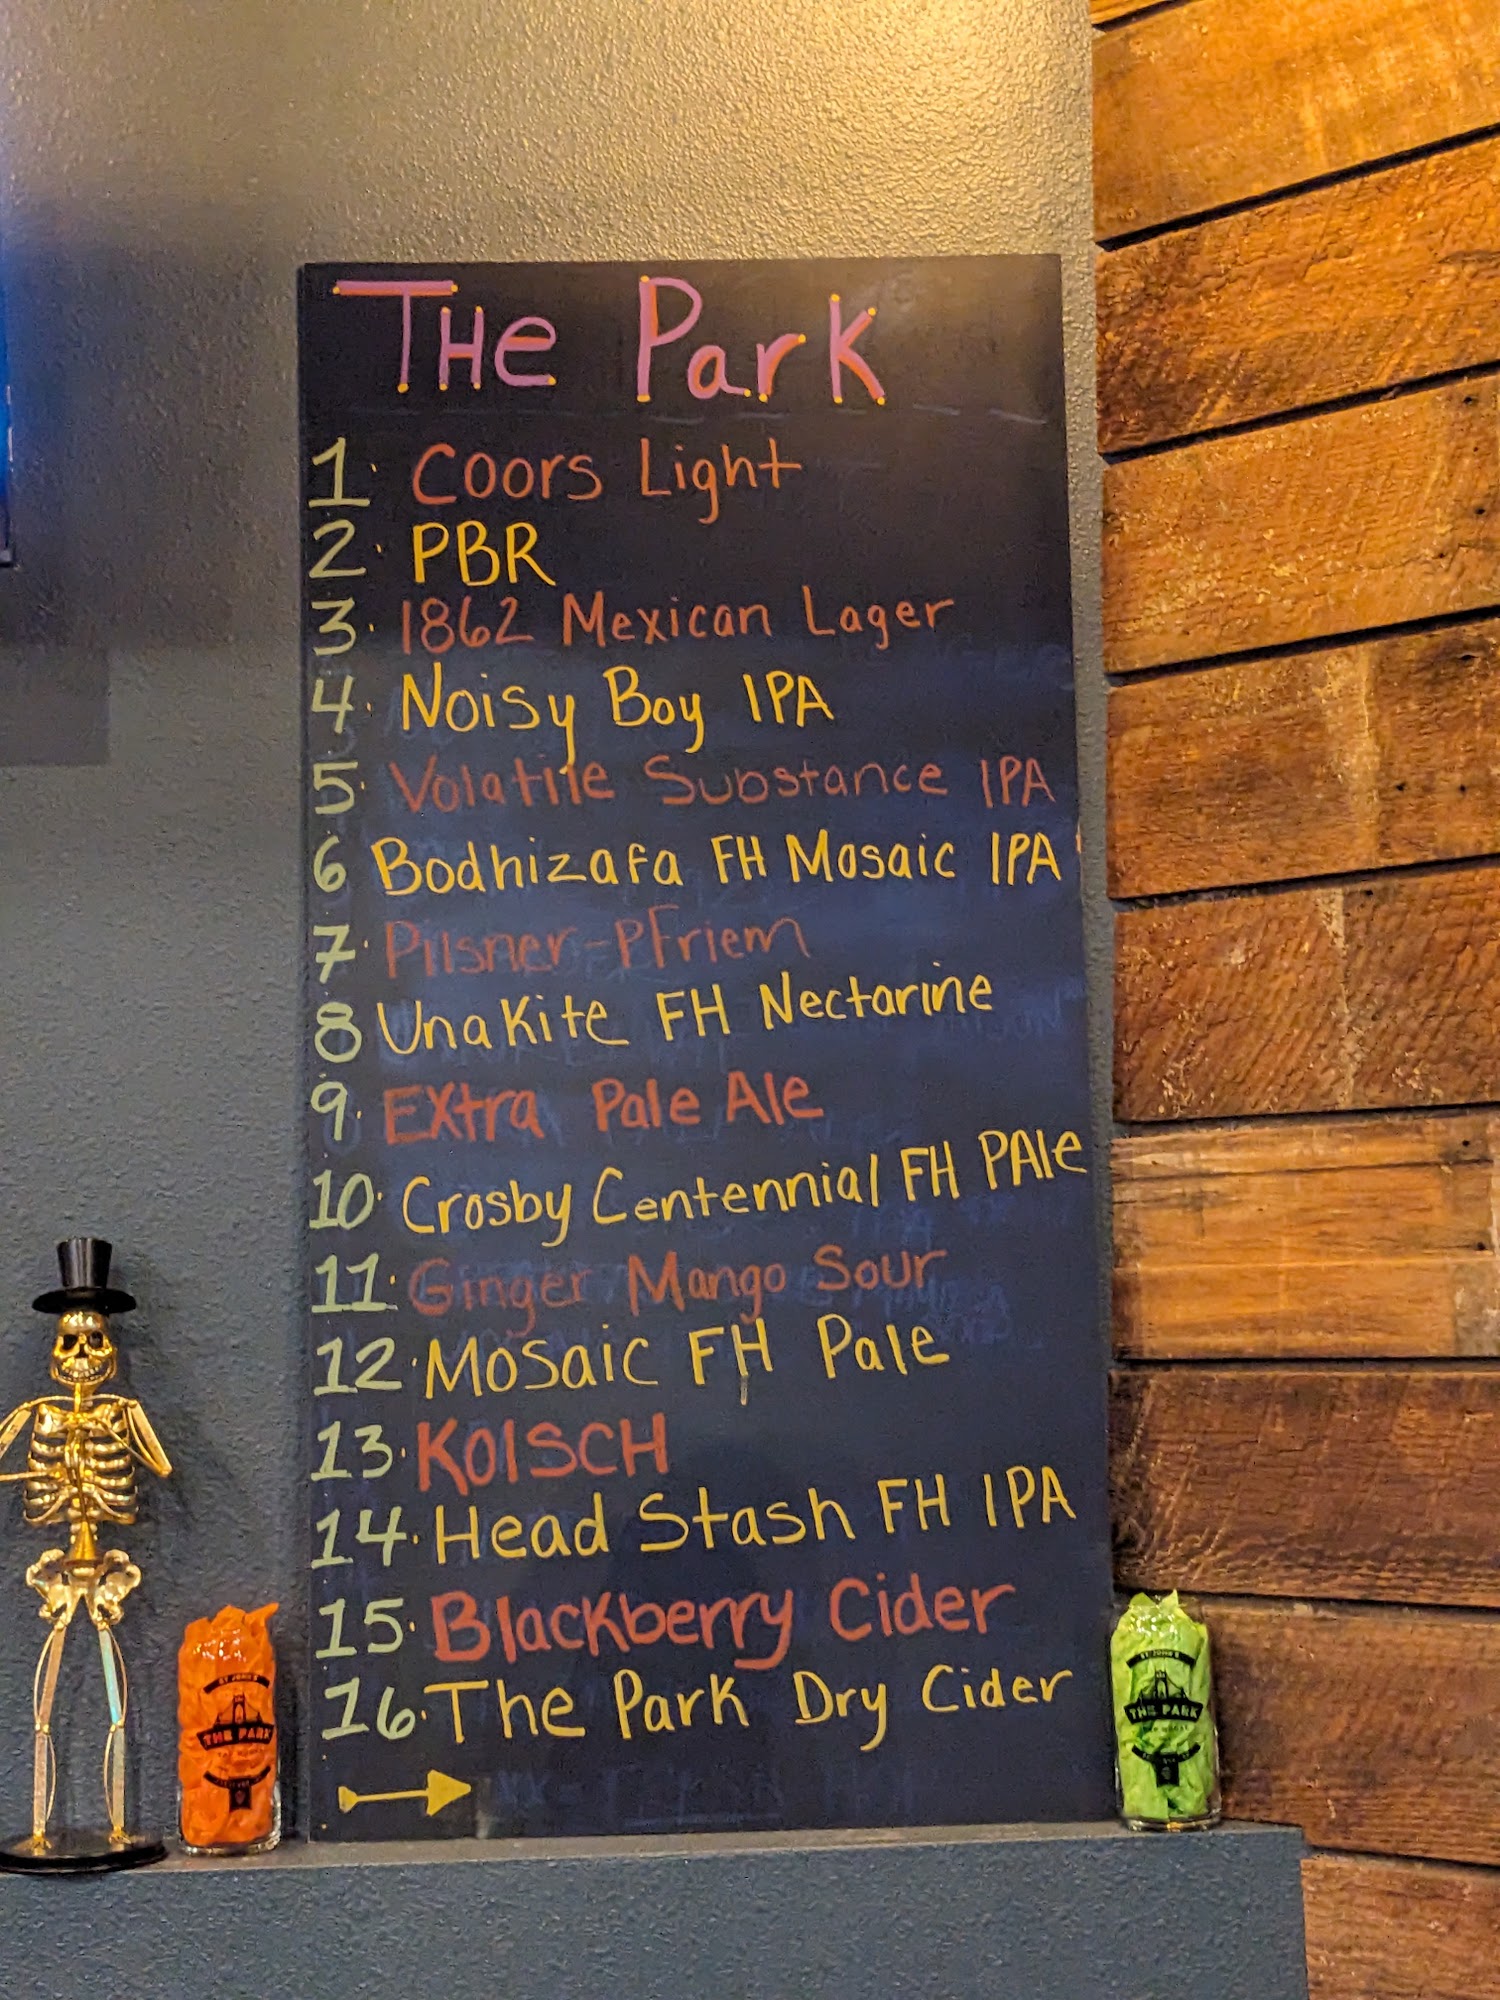 THe Park
1. Coors Light
2. PBR
3. 1862 Mexican Lager
4. Noisy Boy IPA
5. Volatile Substance IPA
6 Bodhizafa FH Mosaic IPA
7. Pilsner-PFriem
8 UnaKite FH Nectarine
9. EXtra Pale Ale
10. Crosby Centennial FH PAle
11. Ginger Mango Sour
12. Mosaic FH Pale
13. KOlSCH
14. Head Stash FH IPA
15. Blackberry Cider
16. The Park Dry Cider
ST. JOHN'S
THE PARK
ST. JOHN'S
THE PARK